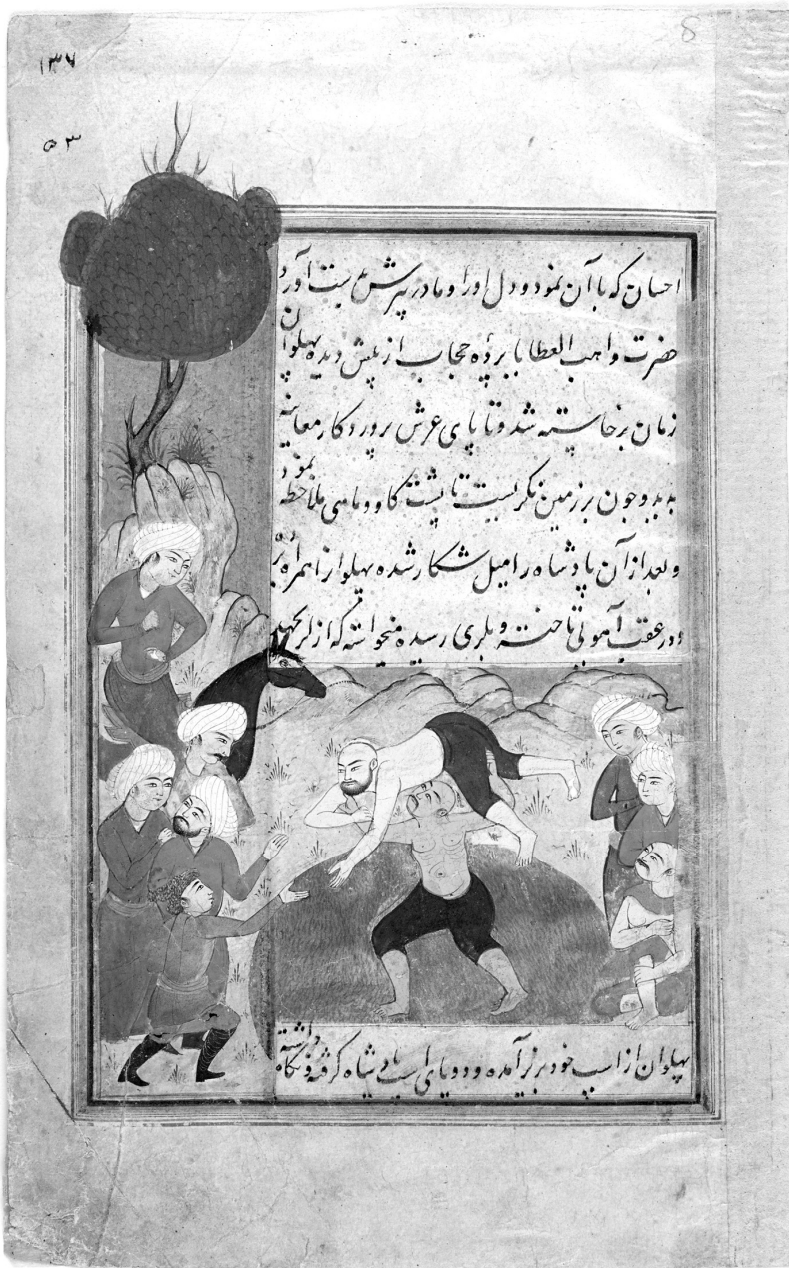 ۱۳۷
۵۳
احسان که با آن نمود و دل او را و مادر پیرش بدست آورد
حضرت واهب العطایا پرده حجاب از پیش دیده پهلوان
زمان برخاسته شد و تا پای عرش پروردگار معاینه
بدید و چون بر زمین نگریست تا پشت گاو و ماهی ملاحظه نمود
و بعد از آن پادشاه را میل شکار شده پهلوانرا همراه برد
و در عقب آهوئی تاخته و بلری رسیده میخواسته که از لر بجهد
پهلوان از اسپ خود بزیر آمده و دو پای اسپ پادشاه گرفته و نگاه داشته